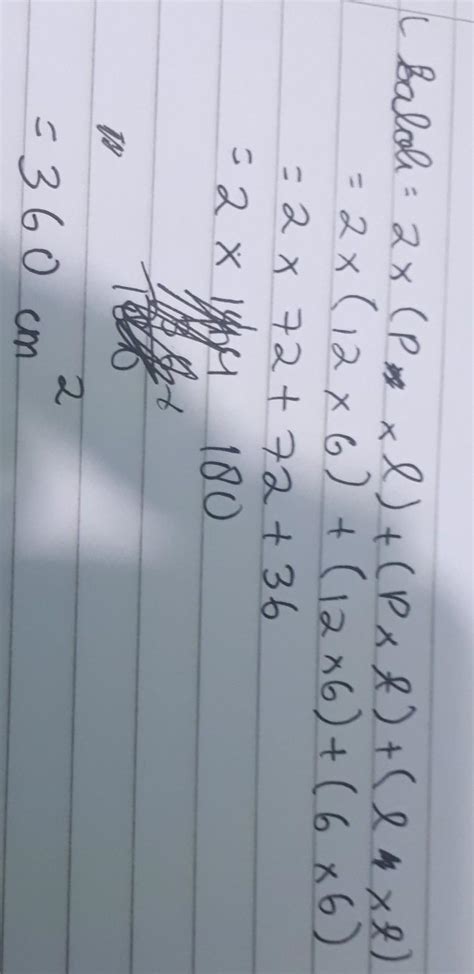 L balok = 2 x (p x l) + (p x t) + (l x t)
= 2 x (12 x 6) + (12 x 6) + (6 x 6)
= 2 x 72 + 72 + 36
= 2 x 180
= 360 cm²